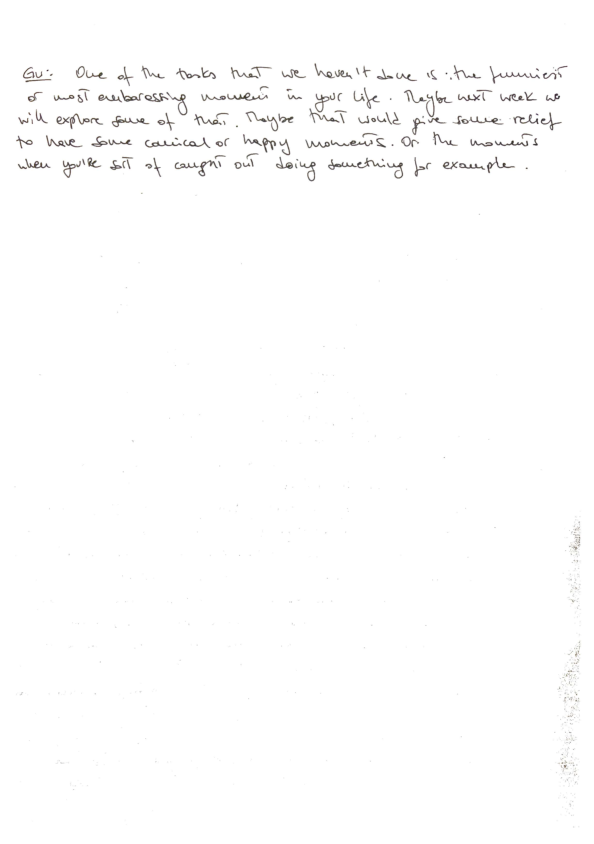 Gu: One of the tasks that we haven't done is: the funniest
or most embarassing moment in your life. Maybe next week we
will explore some of that. Maybe that would give some relief
to have some comical or happy moments. Or the moments
when you're sort of caught out doing something for example.